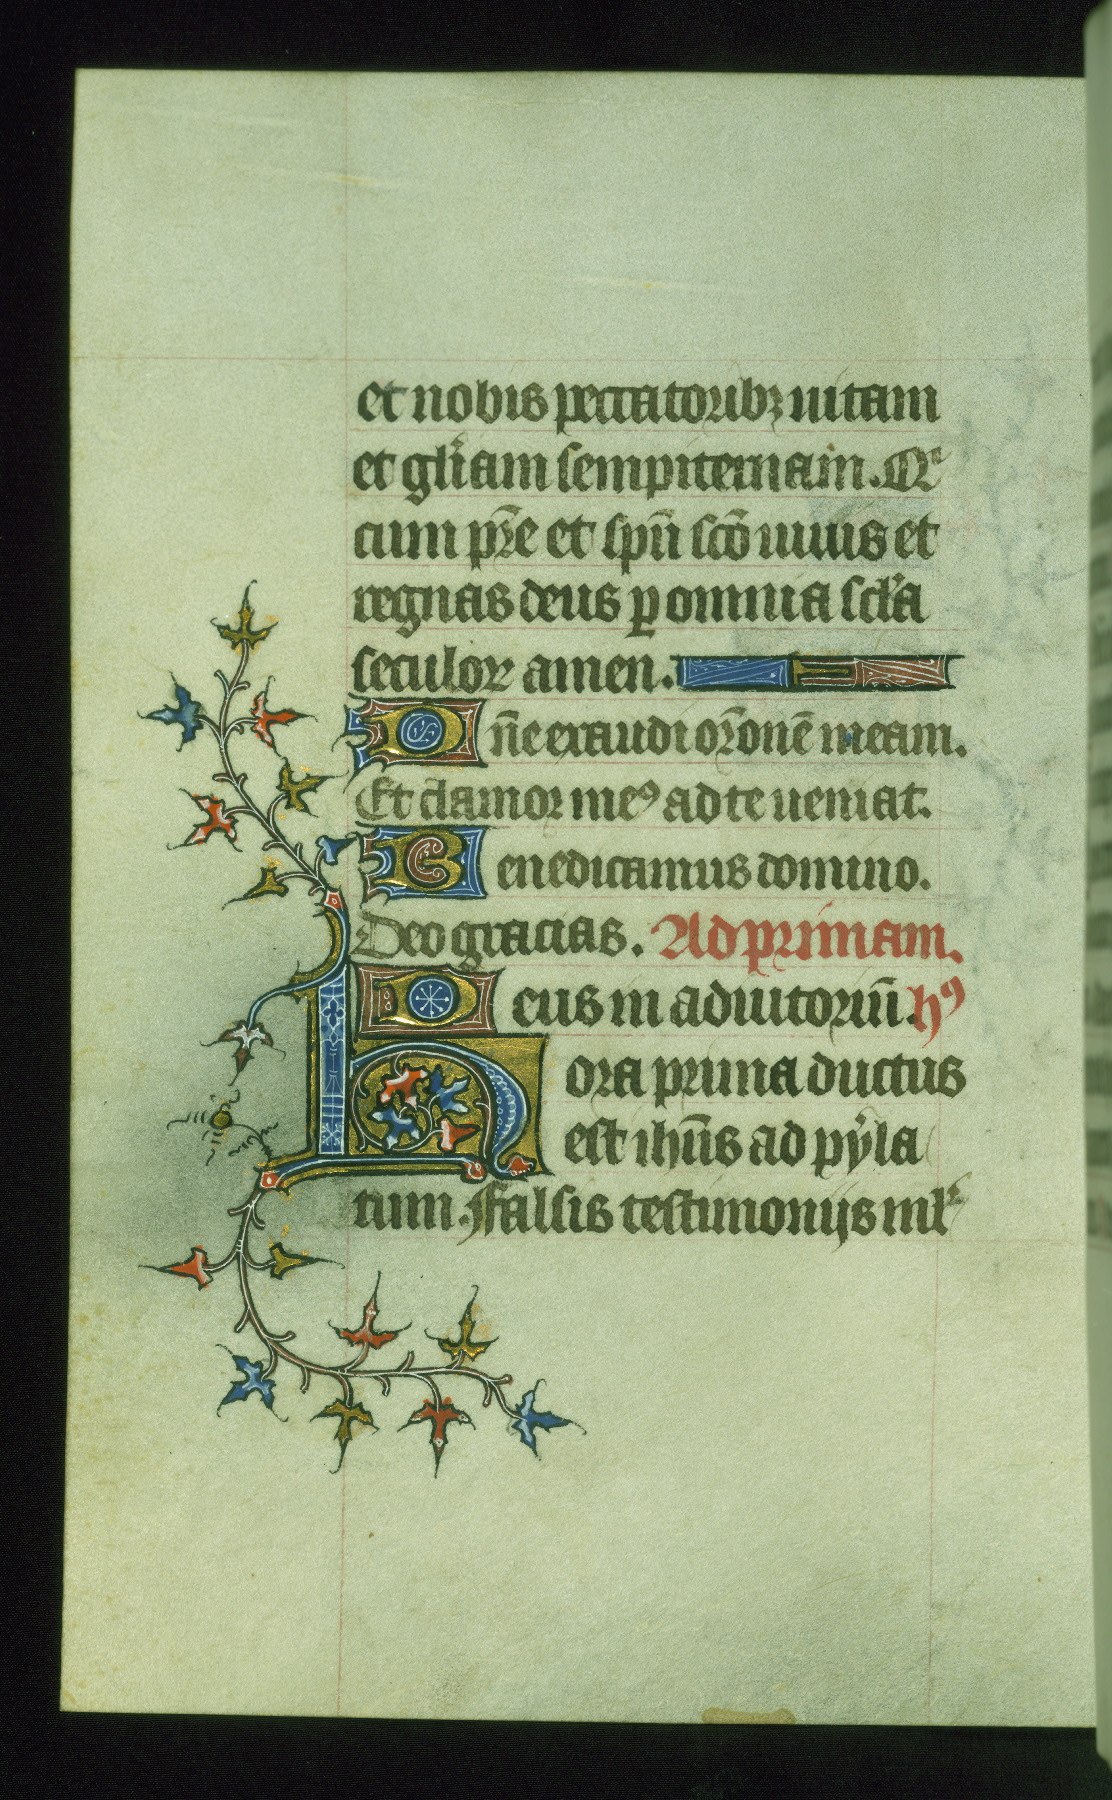 et nobis peccatoribꝫ uitam
et glͥam sempiternam. Qͥ
cum pr̄e et spū sc̄o uiuis et
regnas deus ꝑ omnia scl̓a
seculoꝝ amen.
Dn̄e exaudi or̄onē meam.
Et clamor meꝰ ad te ueniat.
Benedicamus domino.
Deo gracias. Ad primam.
Deus in adiutoriū. hꝰ
Hora prima ductus
est ih̄us ad pẏla
tum. Falsis testimonijs ml̓